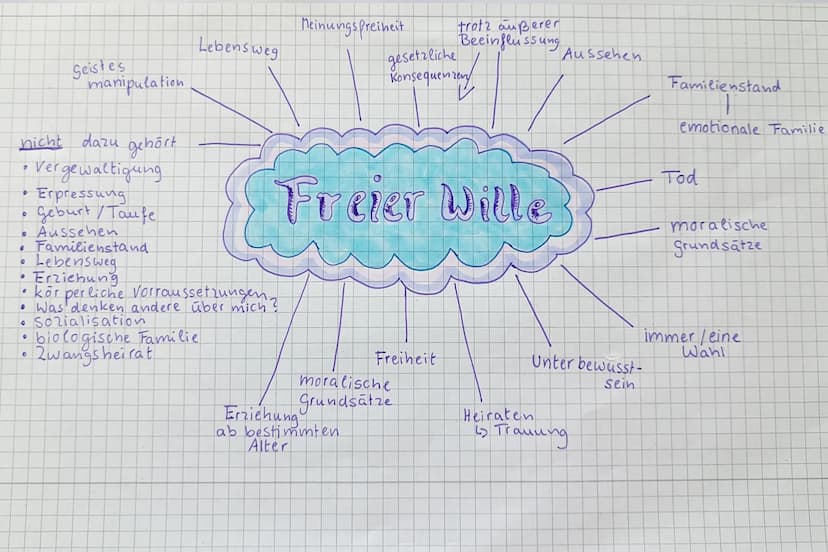 Meinungsfreiheit
trotz äußerer
Beeinflussung
Lebensweg
gesetzliche
Konsequenzen
Aussehen
Geistes
manipulation
Familienstand
emotionale Familie
nicht dazu gehört
• Vergewaltigung
• Erpressung
• Geburt / Taufe
• Aussehen
• Familienstand
• Lebensweg
• Erziehung
• körperliche Vorraussetzungen
• Was denken andere über mich?
• Sozialisation
• biologische Familie
• Zwangsheirat
Freier Wille
Tod
moralische
Grundsätze
immer / eine
Wahl
Unterbewusst-
sein
Heiraten
↳ Trauung
Freiheit
moralische
Grundsätze
Erziehung
ab bestimmten
Alter